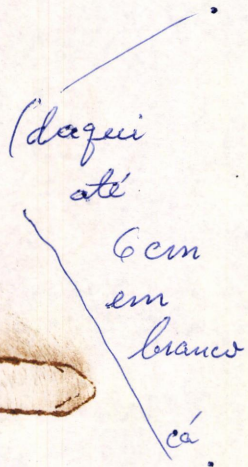 (daqui
até
6 cm
em
branco
cá